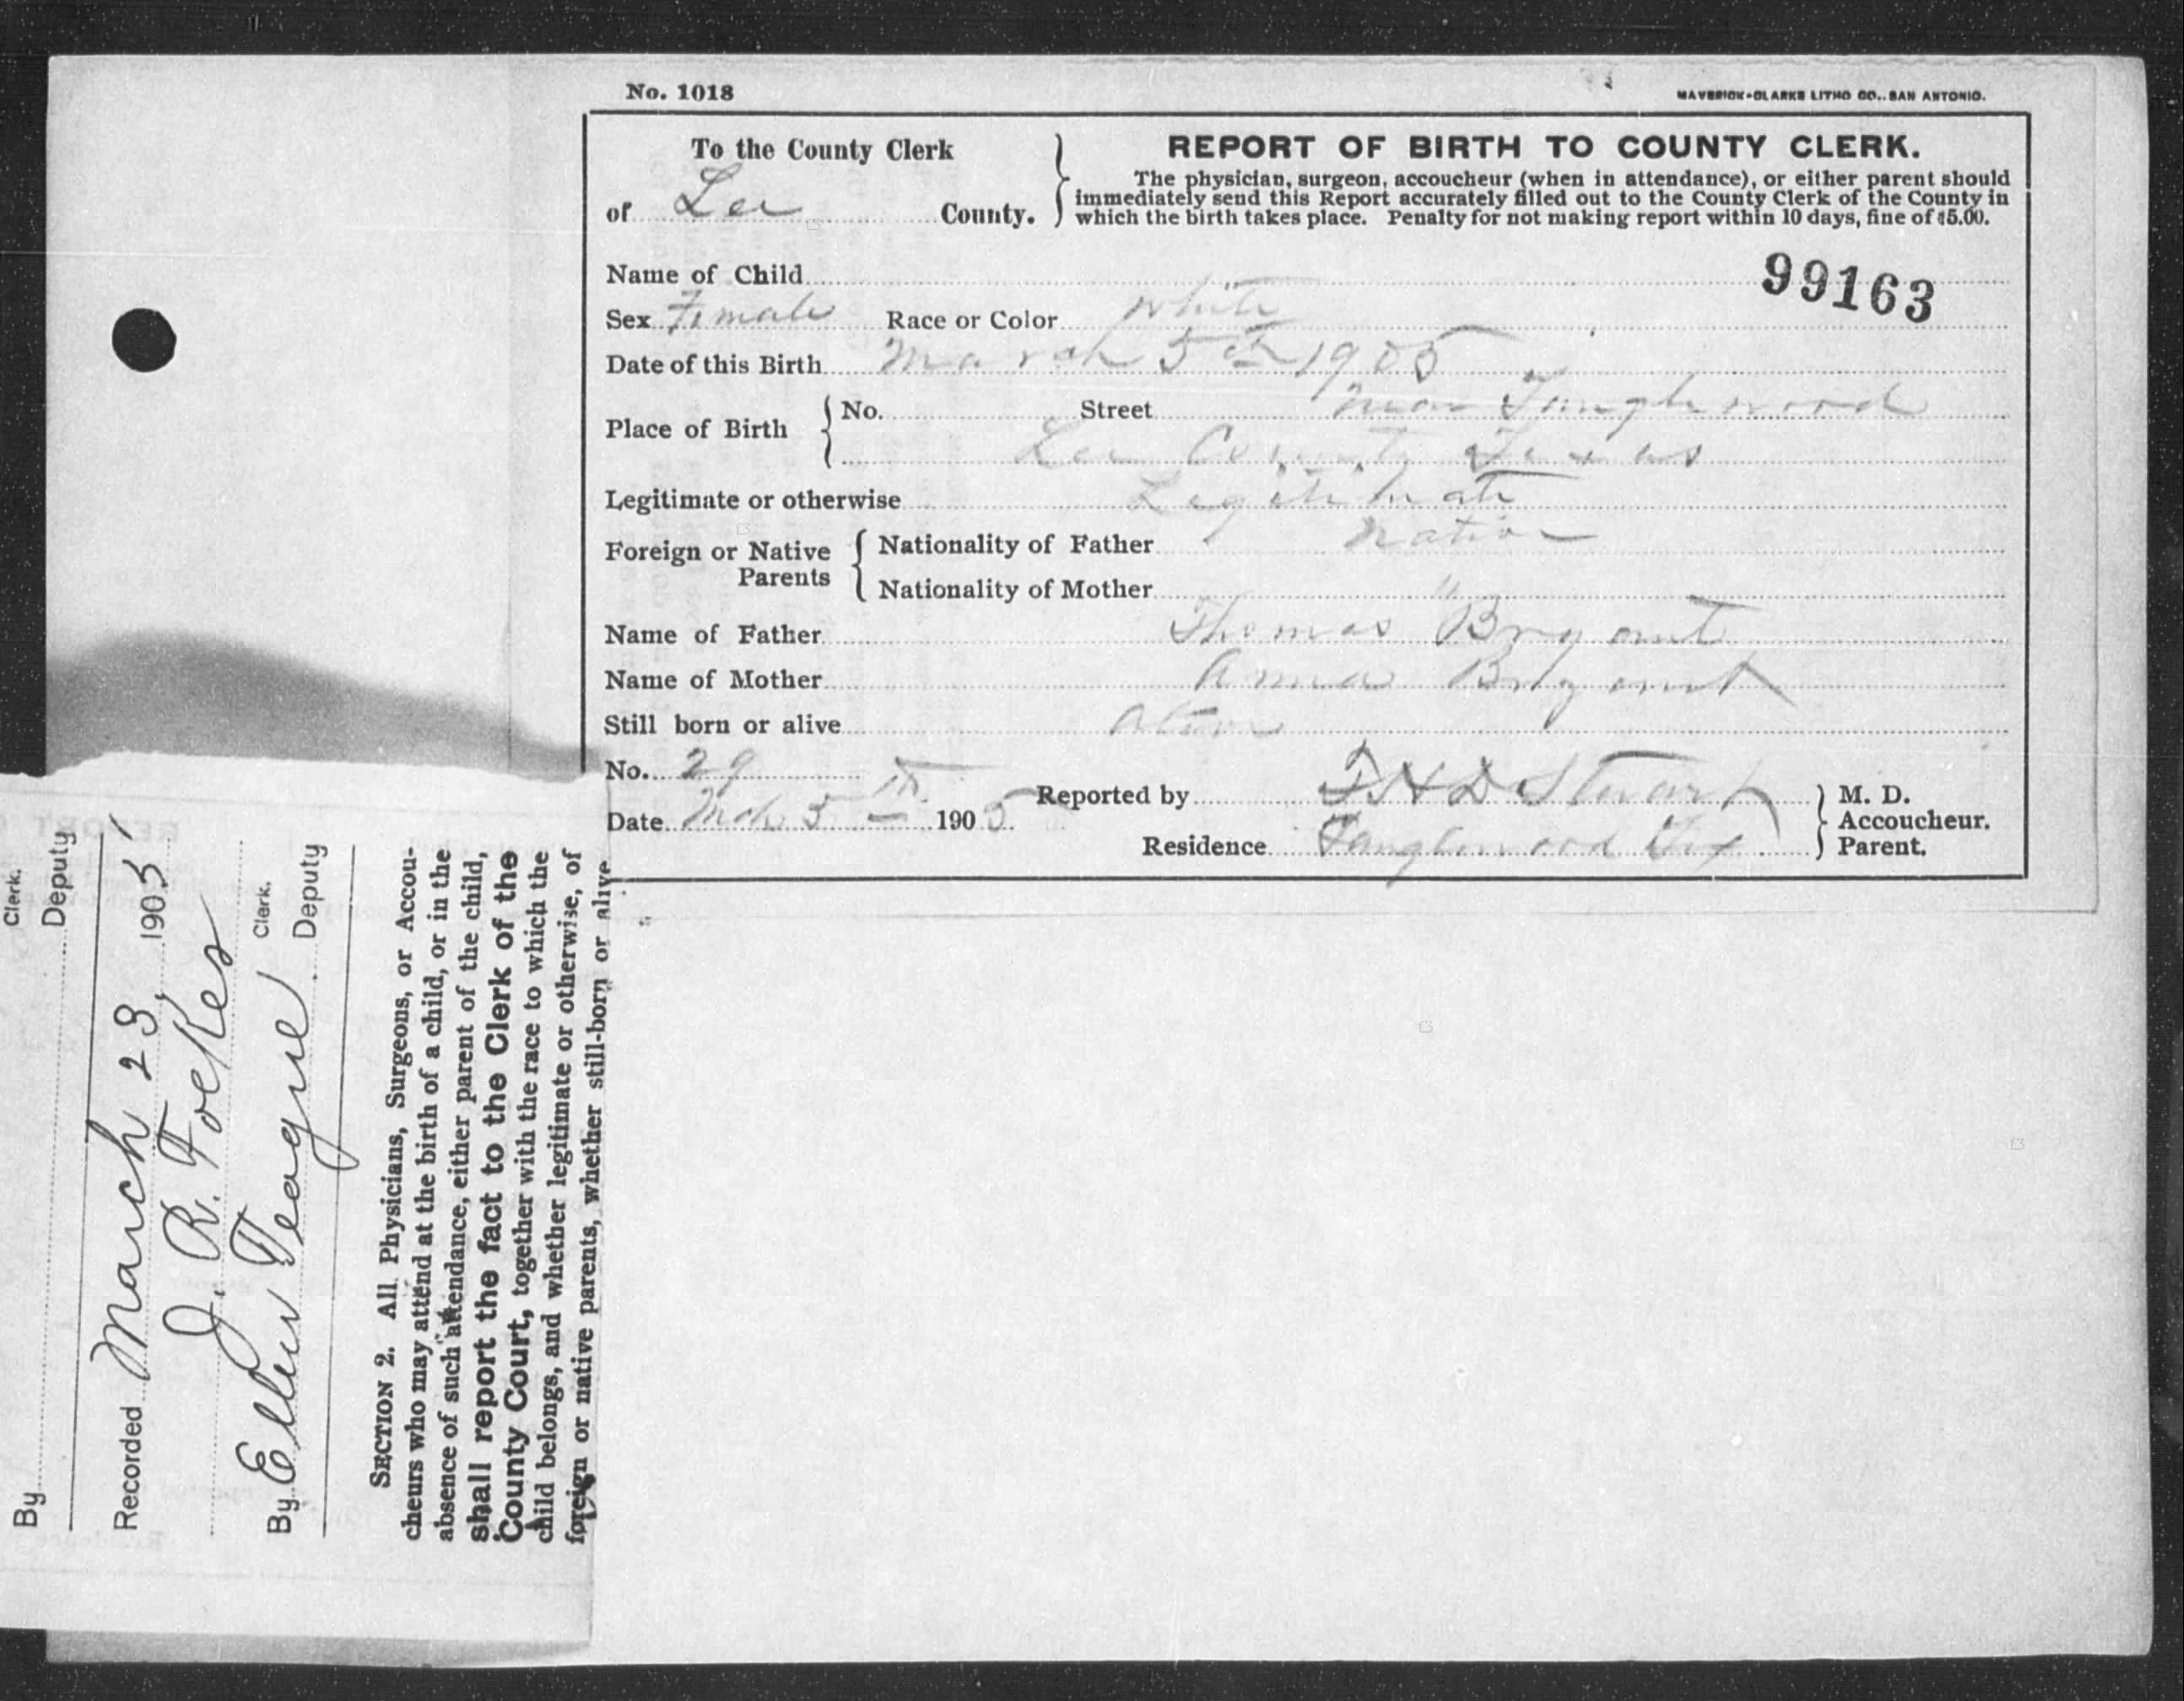 No. 1018
MAVERICK-CLARKE LITHO CO., SAN ANTONIO.
To the County Clerk
of Lee County.
REPORT OF BIRTH TO COUNTY CLERK.
The physician, surgeon, accoucheur (when in attendance), or either parent should
immediately send this Report accurately filled out to the County Clerk of the County in
which the birth takes place. Penalty for not making report within 10 days, fine of $5.00.
Name of Child
99163
Sex Female Race or Color White
Date of this Birth March 5th 1905
Place of Birth No. Street Near Tanglewood
Lee County Texas
Legitimate or otherwise Legitimate
Foreign or Native Parents
Nationality of Father Native
Nationality of Mother "
Name of Father Thomas Bryant
Name of Mother Anna Bryant
Still born or alive Alive
No. 29
Date Mch 5th 1905
Reported by Stewart
Residence Tanglewood Tex
M. D.
Accoucheur.
Parent.
Clerk.
By Deputy
Recorded March 23, 1905
J. R. Fockes Clerk.
By Ellen Teague Deputy
SECTION 2. All Physicians, Surgeons, or Accou-
cheurs who may attend at the birth of a child, or in the
absence of such attendance, either parent of the child,
shall report the fact to the Clerk of the
County Court, together with the race to which the
child belongs, and whether legitimate or otherwise, of
foreign or native parents, whether still-born or alive